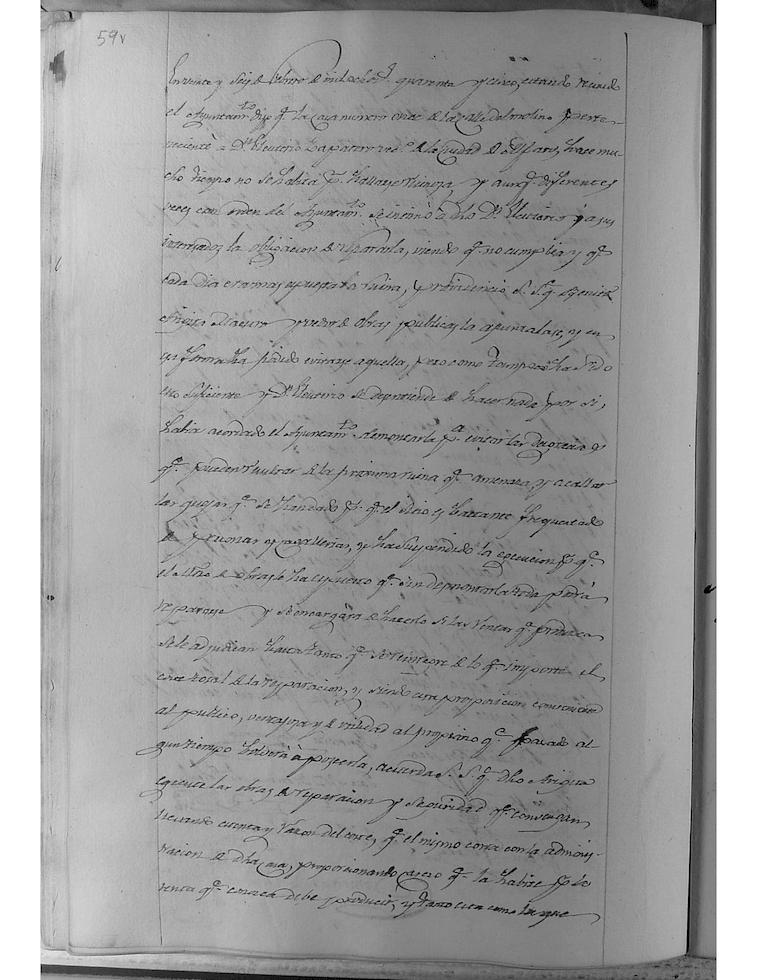 59v
En veinte y seis de Febrero de mil ochos. quarenta y cinco, estando reunido
el Ayuntam.to dijo q.e la casa numero once de la Calle del molino perte-
neciente a D.n Eleuterio Zapatero vec.o de la Ciudad de Alfaro, hace mu-
cho tiempo no se habita p.r hallarse ruinosa, y aunq.e diferentes
veces con orden del Ayuntam.to se intimó a dho D.n Eleuterio y a sus
interesados la obligacion de repararla, viendo q.e no cumplia y q.e
cada dia era mas espuesta la ruina, providenció S. S.a q.e
maestro y veedor de obras publicas la apuntalase, y en
esta forma ha podido evitarse aquella, pero como tampoco ha sido
esto suficiente y D.n Eleuterio se desprende de hacer nada por si,
habia acordado el Ayuntam.to demontarla p.a evitar las desgracias
q.e pueden resultar de la proxima ruina q.e amenaza, y acallar
las quejas q.e se han dado p.r q.e el sitio es bastante frequentado
de personas y caballerias, y ha suspendido la egecucion p.r q.e
el Mtro de obras le ha espuesto q.e sin desmontarla toda podrá
repararse y se encargará de hacerlo si las rentas q.e produzca
se le adjudican hasta tanto q.e se reintegre de lo q.e importe el
coste total de la reparacion, y siendo esta proposicion conveniente
al publico, ventajosa y de utilidad al propietario q.e pasado al-
gun tiempo bolverá a poseerla, acuerda S. S. q.e dho
egecute las obras de reparacion y seguridad q.e convengan,
llevando cuenta y razon del coste, q.e el mismo corra con la adminis-
tracion de dha casa, proporcionando q.e la habite p.r la
renta q.e conozca debe producir, y tanto esta como la que